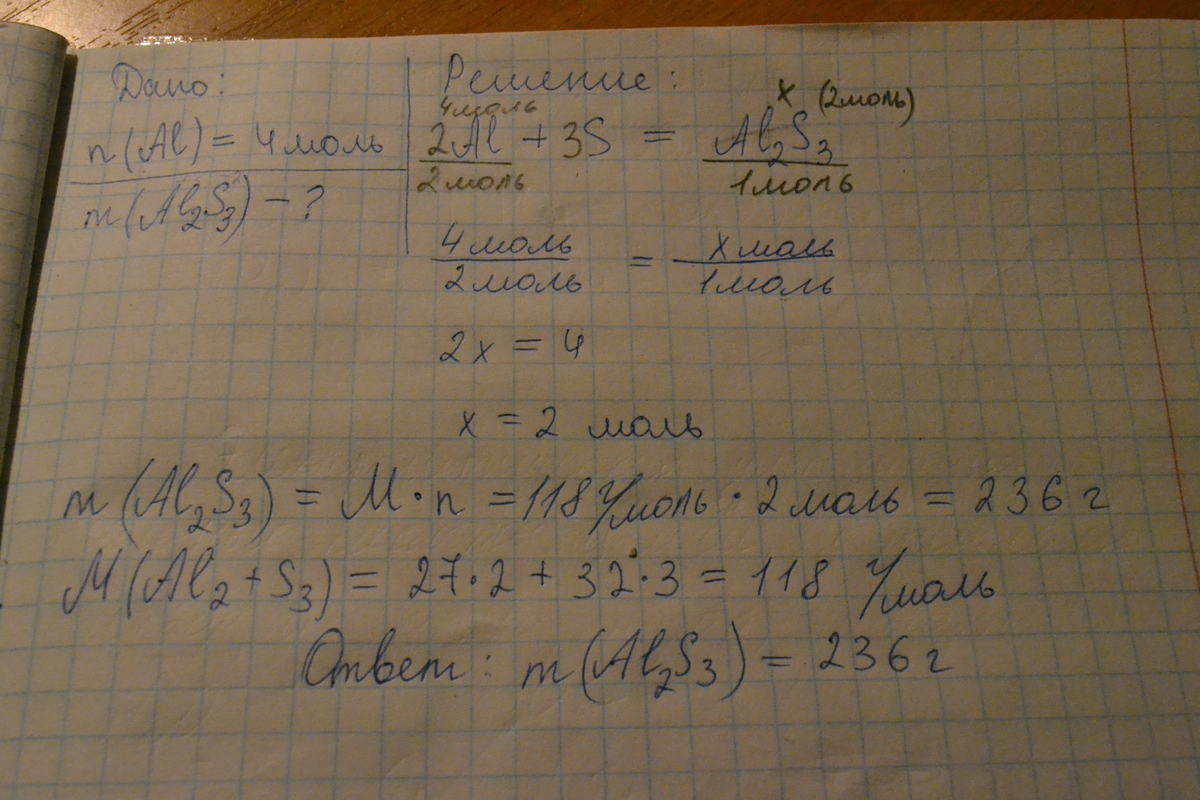 Дано:
n(Al) = 4 моль
m(Al₂S₃) – ?
Решение:
4 моль x (2 моль)
2Al + 3S = Al₂S₃
2 моль 1 моль
4 моль = x моль
2 моль 1 моль
2x = 4
x = 2 моль
m(Al₂S₃) = M · n = 118 г/моль · 2 моль = 236 г
M(Al₂ + S₃) = 27·2 + 32·3 = 118 г/моль
Ответ: m(Al₂S₃) = 236 г